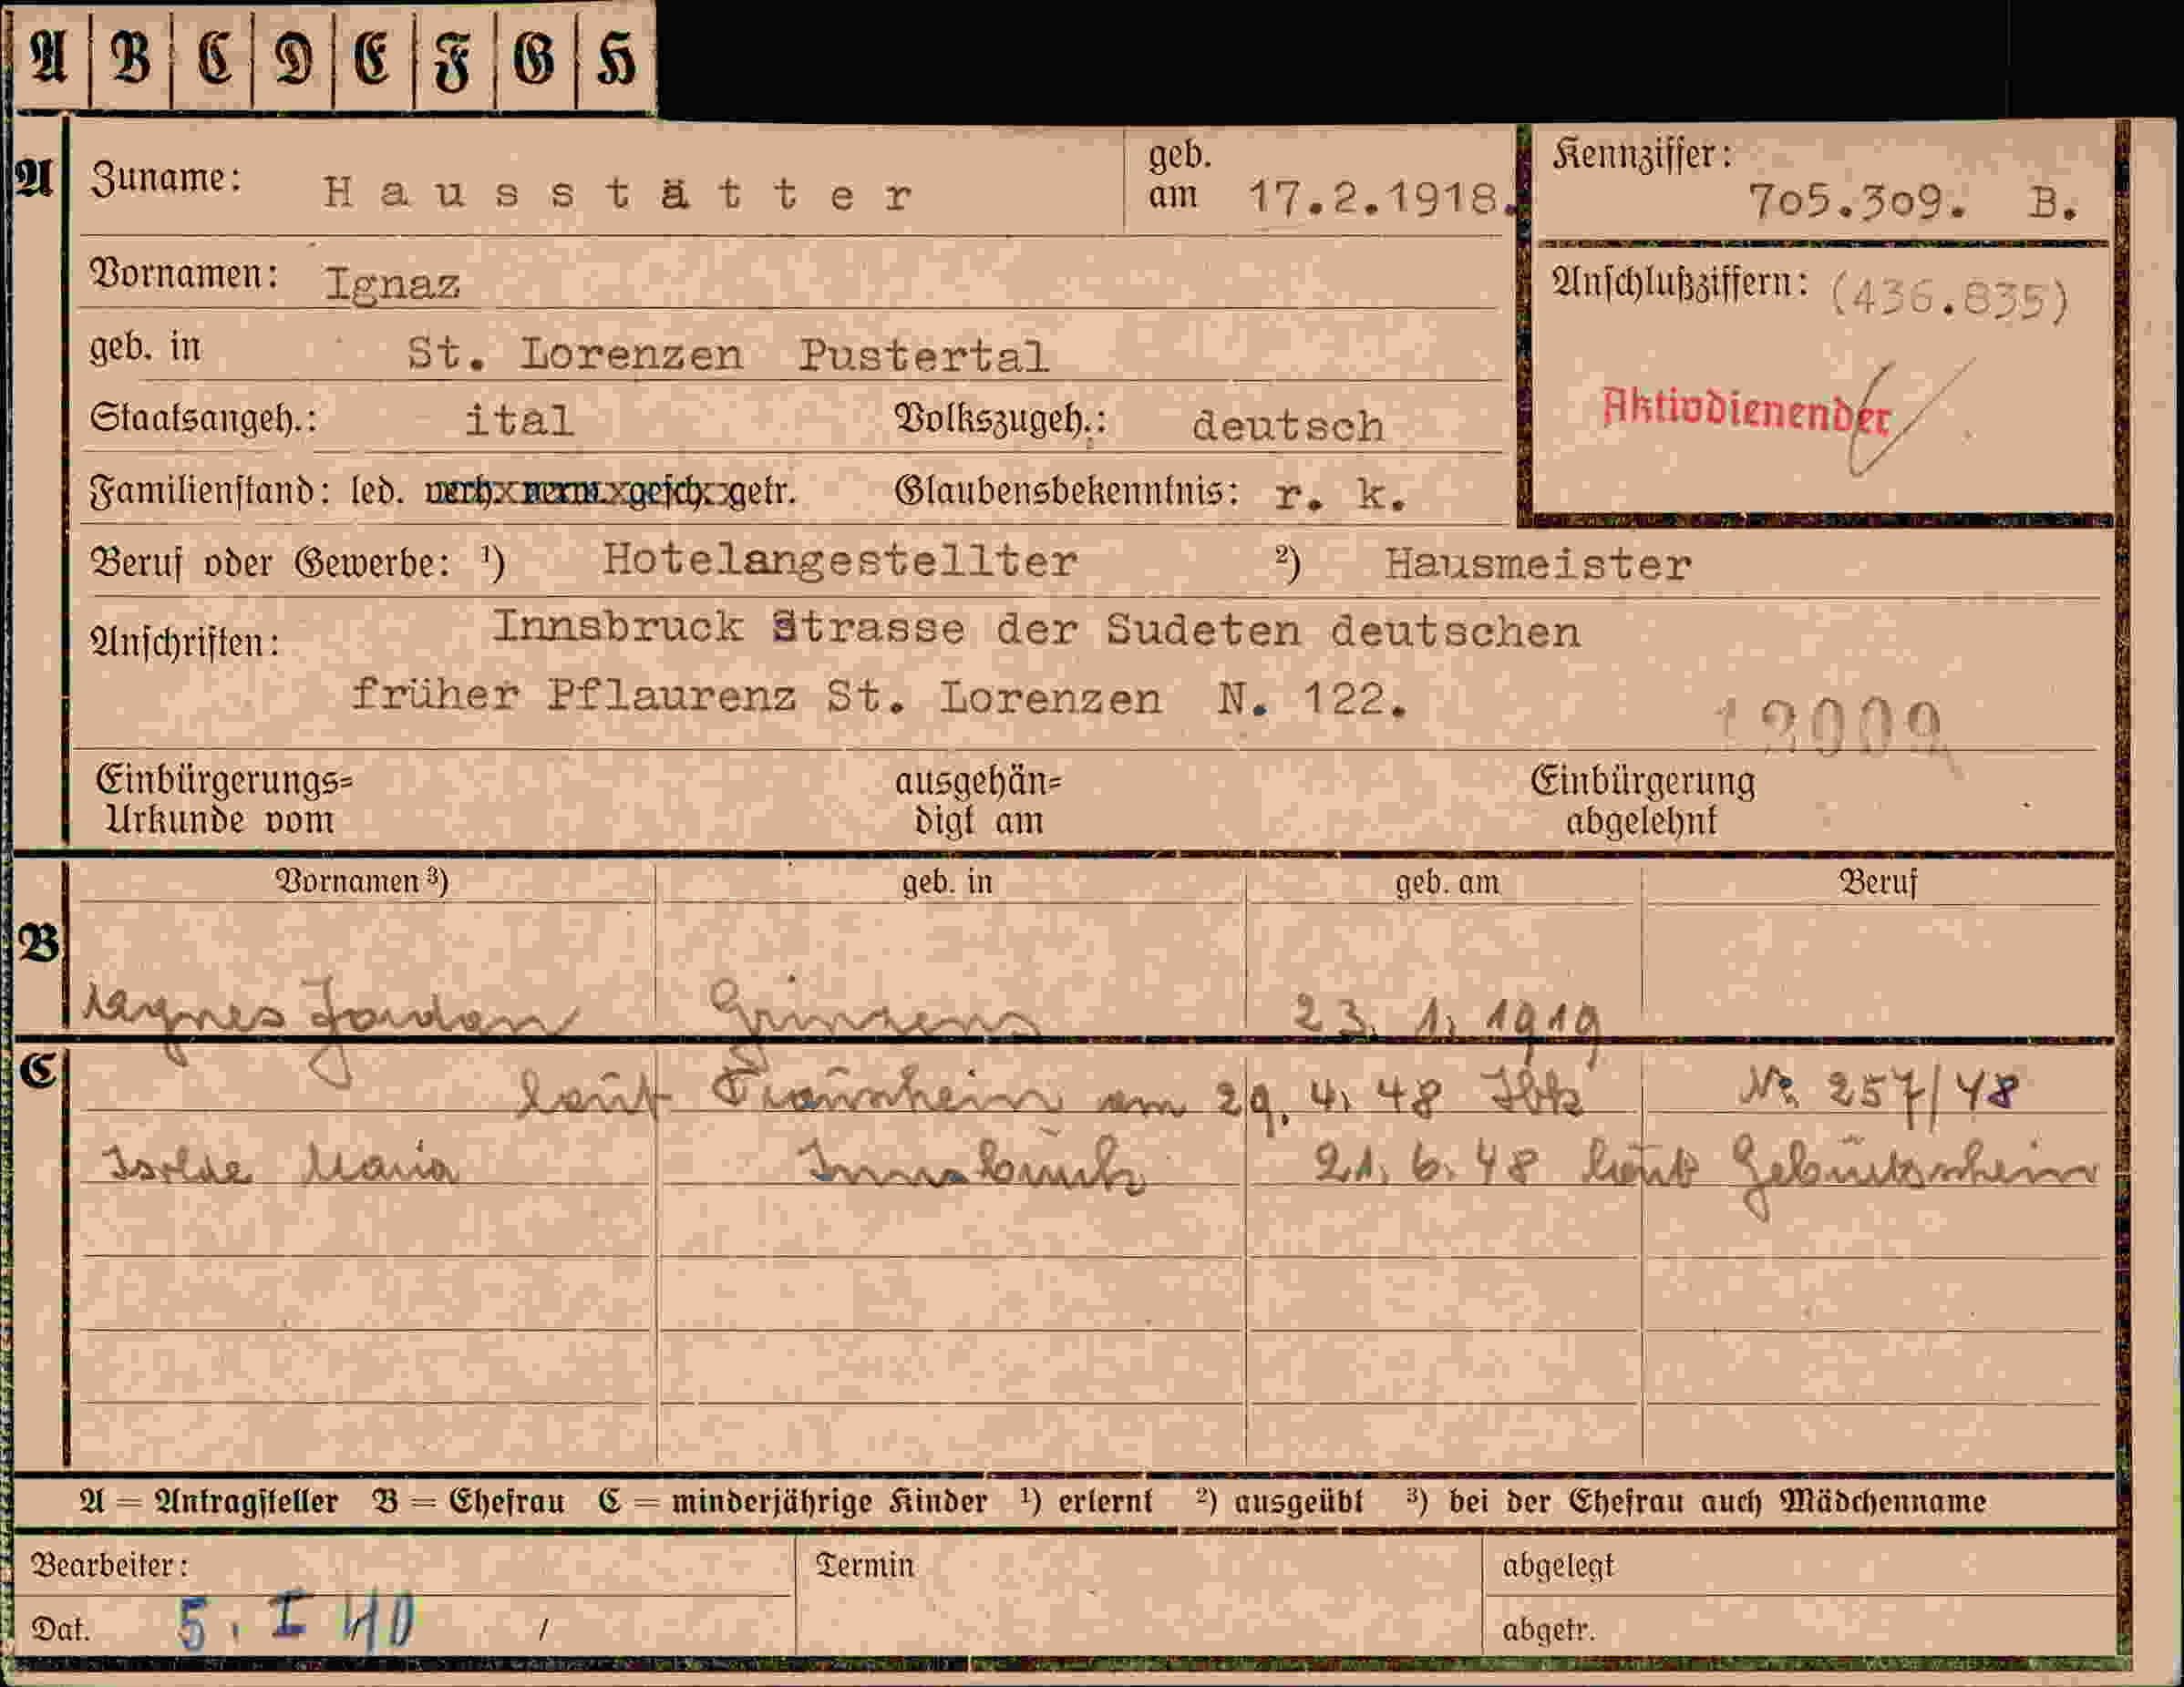 A B C D E F G H
A Zuname: Hausstätter geb. am 17.2.1918.
Kennziffer: 705.309. B.
Vornamen: Ignaz
Anschlußziffern: (436.835)
geb. in St. Lorenzen Pustertal
Aktivdienender
Staatsangeh.: ital Volkszugeh.: deutsch
Familienstand: led. verh. verw. gesch. getr. Glaubensbekenntnis: r. k.
Beruf oder Gewerbe: ¹) Hotelangestellter ²) Hausmeister
Anschriften: Innsbruck Strasse der Sudeten deutschen
früher Pflaurenz St. Lorenzen N. 122.
12009
Einbürgerungs= Urkunde vom
ausgehän= digt am
Einbürgerung abgelehnt
Vornamen ³) geb. in geb. am Beruf
B Agnes Jordan Grinzens 23. 1. 1919
C laut Trauschein am 29. 4. 48 Ibk Nr. 257/48
Isolde Maria Innsbruck 21. 6. 48 laut Geburtsschein
A = Antragsteller B = Ehefrau C = minderjährige Kinder ¹) erlernt ²) ausgeübt ³) bei der Ehefrau auch Mädchenname
Bearbeiter: Termin abgelegt
Dat. 5. I 40 / abgetr.